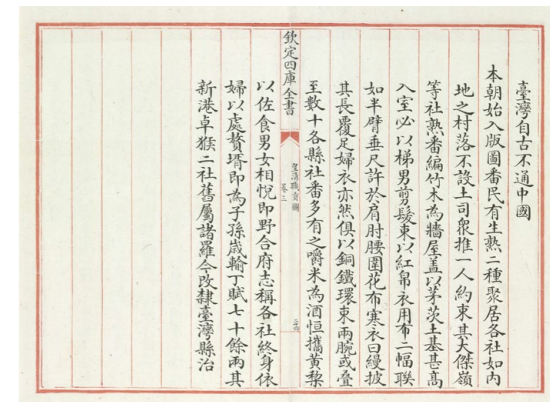 臺灣自古不通中國
本朝始入版圖番民有生熟二種聚居各社如内
地之村落不設土司衆推一人約束其大傑嶺
等社熟番編竹木為牆屋蓋以茅茨土基甚高
入室必以梯男剪髮束以紅帛衣用布二幅聯
如半臂垂尺許於肩肘腰圍花布寒衣曰縵披
其長覆足婦衣亦然俱以銅鐵環束兩腕或叠
至數十各縣社番多有之嚼米為酒恒攜黄棃
欽定四庫全書
皇清職貢圖
卷三
以佐食男女相悦即野合府志稱各社終身依
婦以處贅壻即為子孫嵗輸丁賦七十餘兩其
新港卓猴二社舊屬諸羅今改隸臺灣縣治